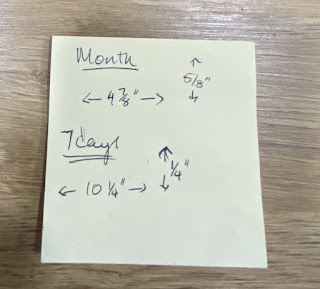 Month
↑
5/8"
↓
← 4 7/8" →
7 days
↑
1/4"
↓
← 10 1/4" →